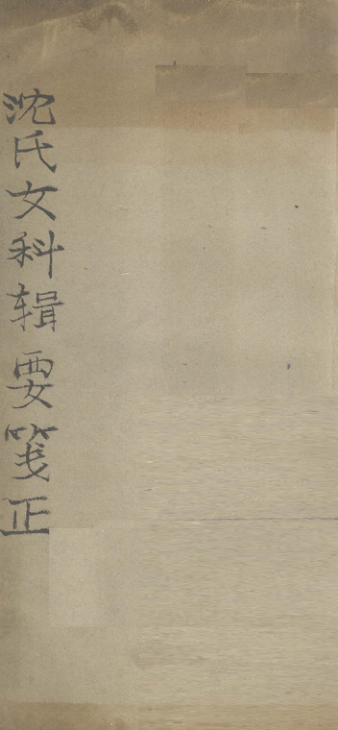 沈氏女科辑要笺正